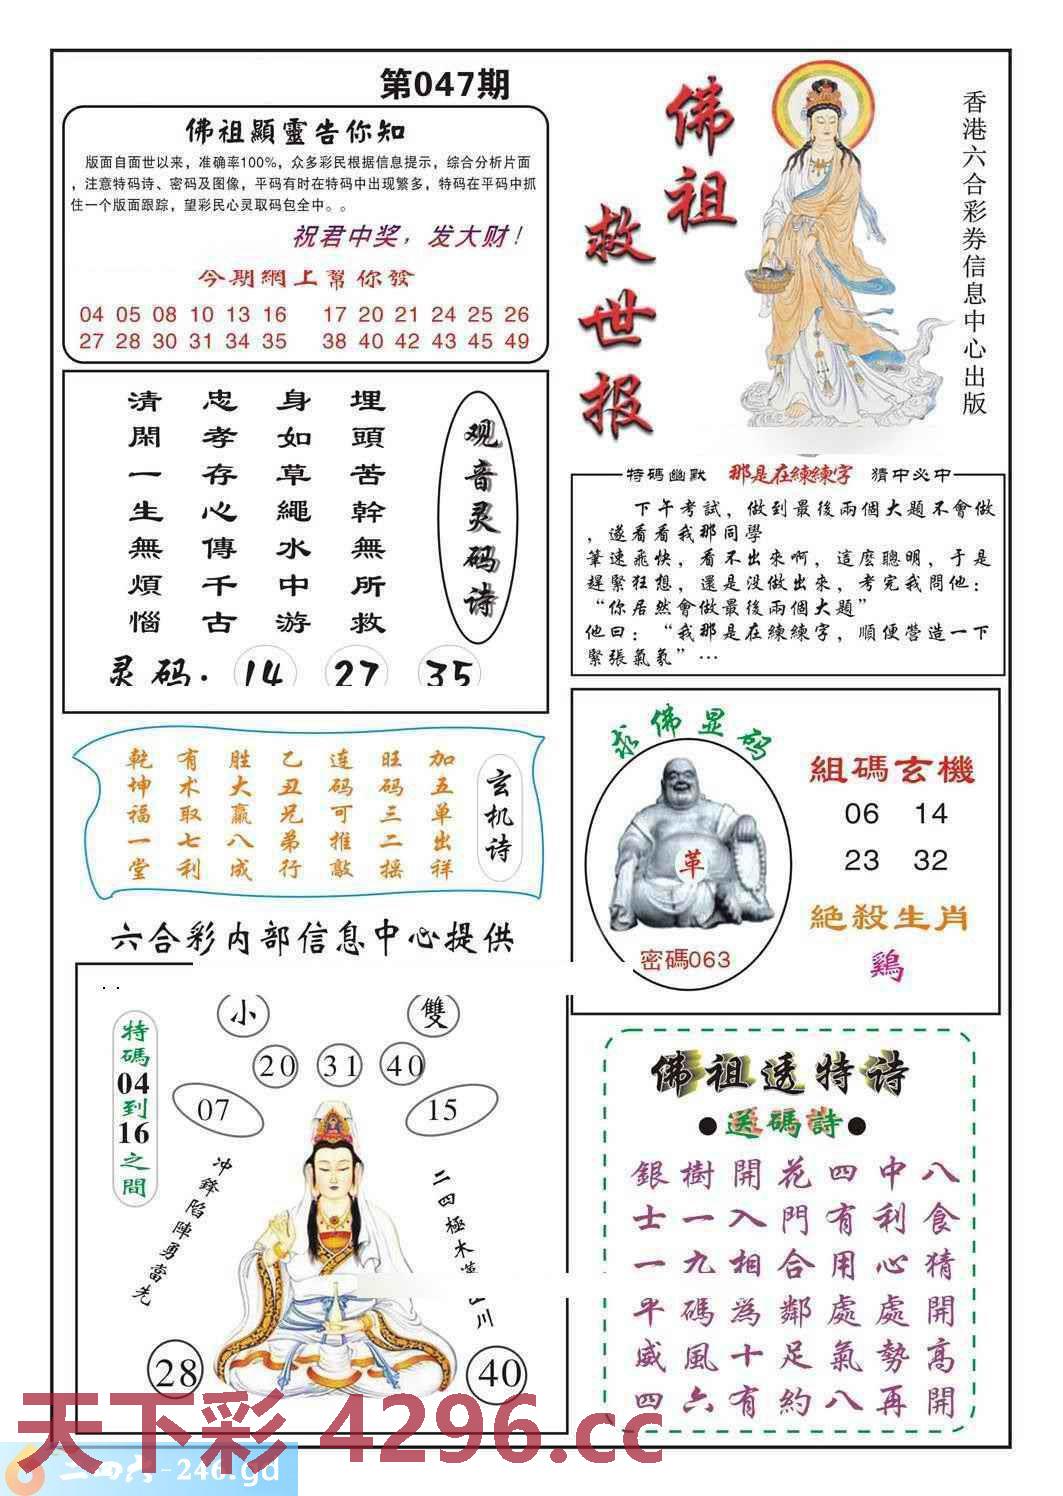 第047期
佛祖顯靈告你知
版面自面世以来，准确率100%，众多彩民根据信息提示，综合分析片面
，注意特码诗、密码及图像，平码有时在特码中出现繁多，特码在平码中抓
住一个版面跟踪，望彩民心灵取码包全中。。
祝君中奖，发大财！
今期網上幫你發
04 05 08 10 13 16 17 20 21 24 25 26
27 28 30 31 34 35 38 40 42 43 45 49
佛祖
救世报
香港六合彩券信息中心出版
观音灵码诗
埋頭苦幹無所救
身如草繩水中游
忠孝存心傳千古
清閑一生無煩惱
灵码. 14 27 35
特碼幽默 那是在練練字 猜中必中
下午考試，做到最後兩個大題不會做
，遂看看我那同學
筆速飛快，看不出來啊，這麼聰明，于是
趕緊狂想，還是没做出來，考完我問他：
“你居然會做最後兩個大題”
他曰：“我那是在練練字，順便營造一下
緊張氣氛”…
玄机诗
加五单出祥
旺码三二摇
连码可推敲
乙丑兄弟行
胜大赢八成
有术取七利
乾坤福一堂
求佛显码
革
密碼063
組碼玄機
06 14
23 32
絕殺生肖
鷄
六合彩内部信息中心提供
特碼04到16之間
小 雙
20 31 40
07 15
冲鋒陷陣勇當先
二四極木
川
28 40
佛祖透特诗
●送碼詩●
銀樹開花四中八
士一入門有利食
一九相合用心猜
平碼為鄰處處開
威風十足氣勢高
四六有約八再開
天下彩 4296.cc
二四六-246.gd